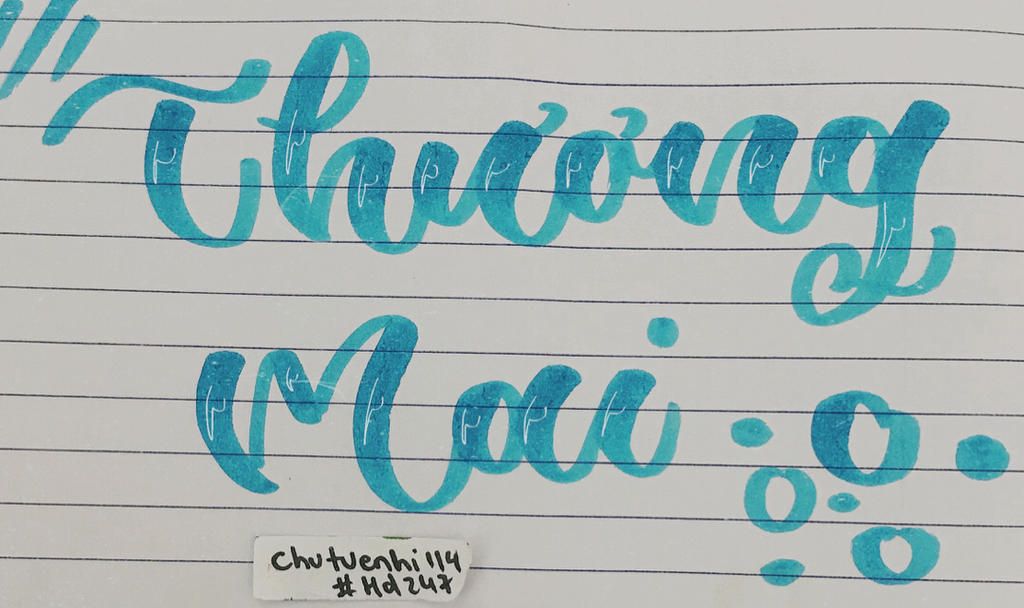 Thương
Mai
chutuenhi114
#Hd247